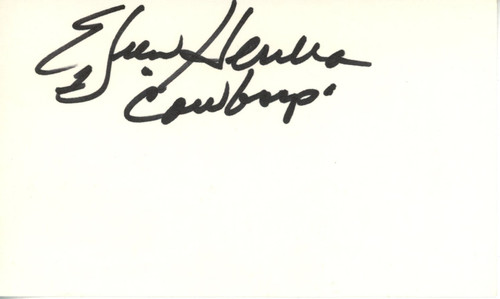 Efren Herrera
1 "Cowboys"